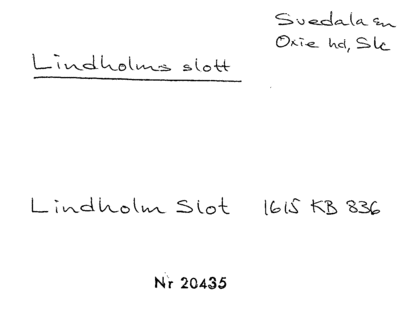 Svedala sn
Oxie hd, Sk
Lindholms slott
Lindholm Slot 1615 KB 836
Nr 20435